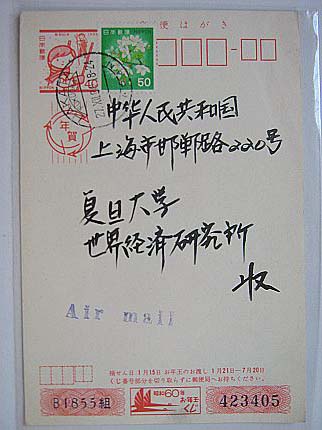 郵便はがき
日本郵便
日本郵便
50
年賀
中华人民共和国
上海市邯郸路220号
夏旦大学
世界经济研究所
收
Air mail
抽せん日 1月15日 お年玉のお渡し 1月21日―7月20日
くじ番号部分を切り取らずに郵便局へお持ちください。
昭和60年
お年玉
くじ
B1855組
423405